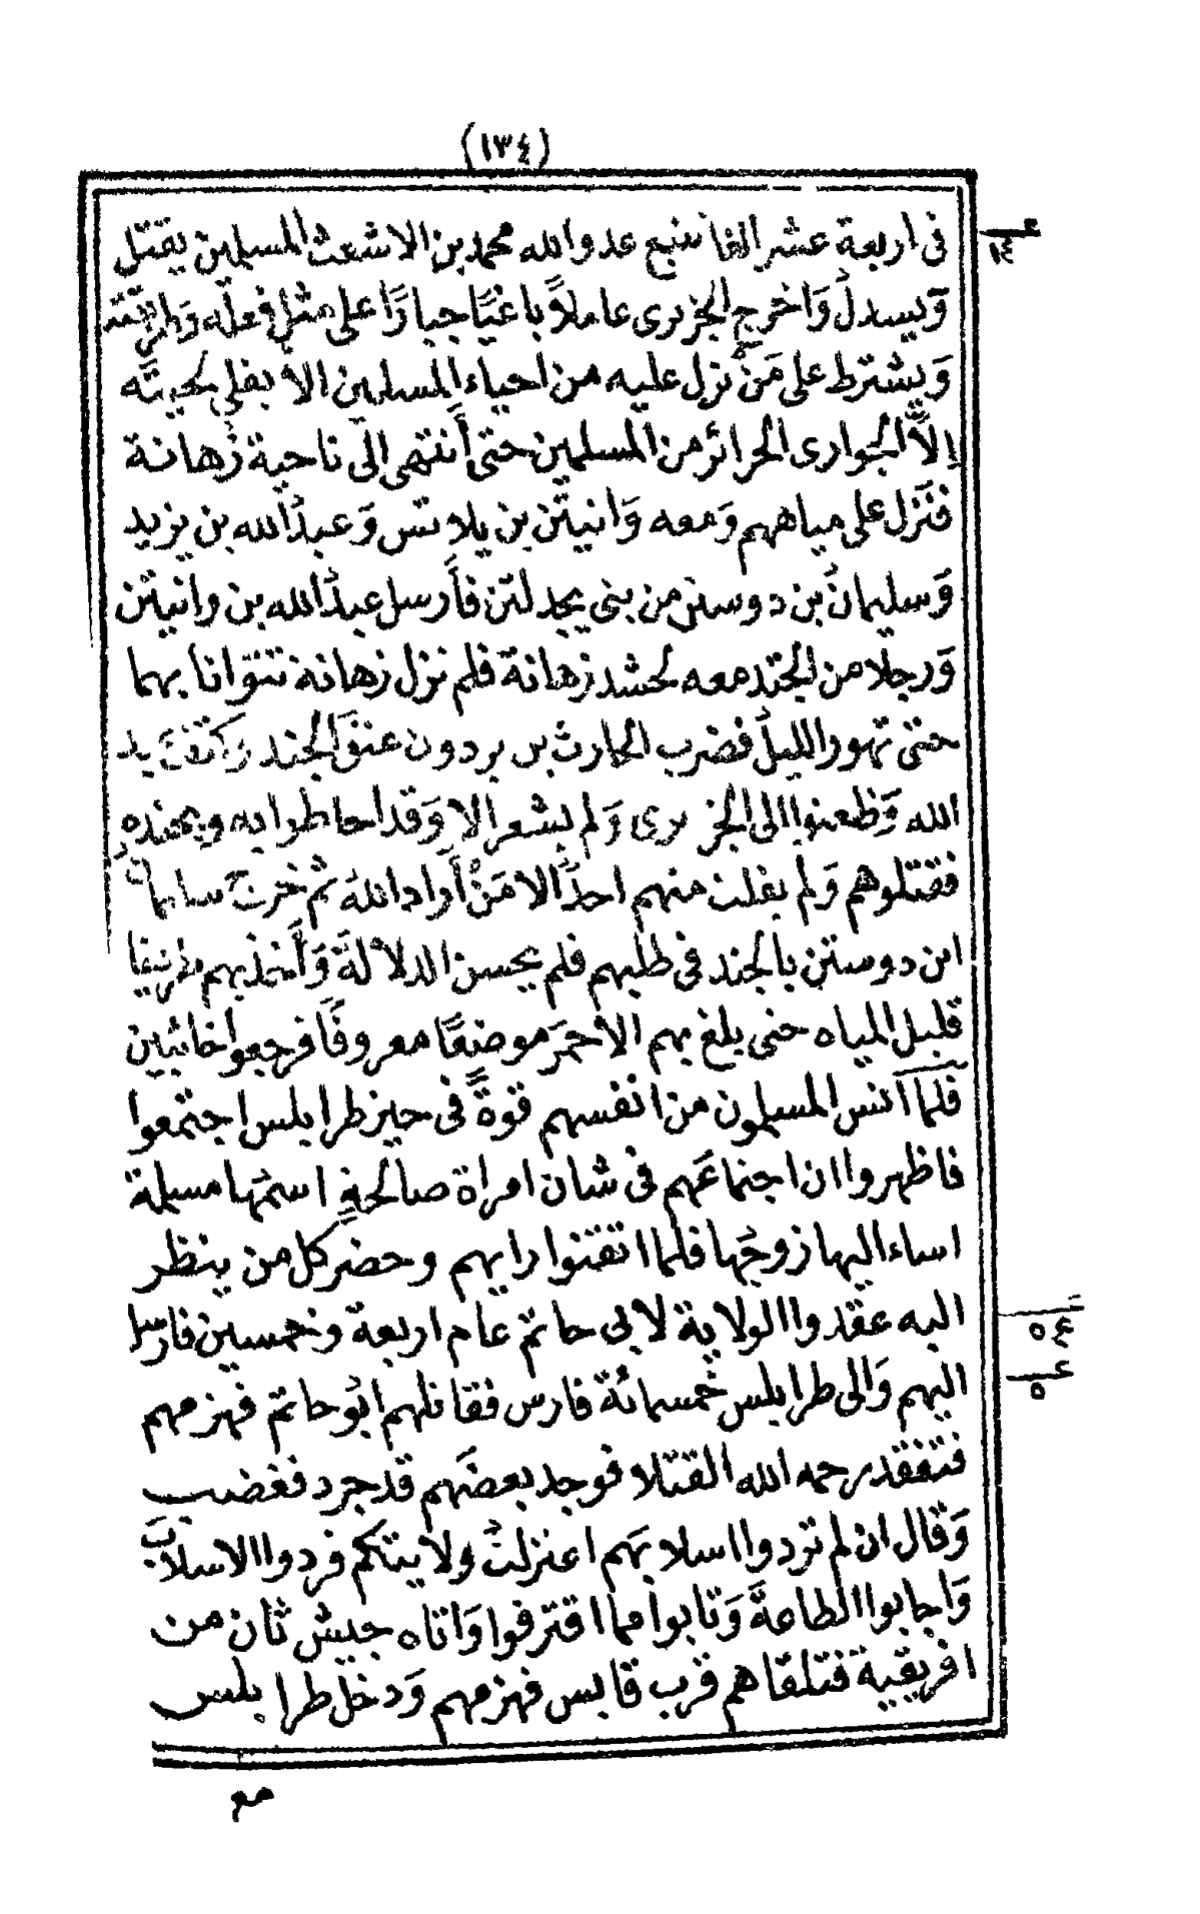 (١٣٤)
فى اربعة عشر الفا تتبع عدو الله محمد بن الاشعث المسلمين يقتل
وَيسدلُ وَاخرج الجزيرى عاملاً باغيًا جبارًا على مثل فعله
وَيشترط على مَنْ نزل عليه من احياء المسلمين الا يفلى لحيته
إلاَّ الجوارى الحرائر من المسلمين حتى أنتهى الى ناحية زهانة
فنَزل على مياههم وَمعه وَانيتن بن يلاتس وَعبدُ الله بن يزيد
وَسليمانُ بن دوستن من بنى يجدلتن فأَرسل عبدُ الله بن وانيتن
وَرجلا من الجند معه لحشد زهانة فلم نزل زهانة تتوانا بهما
حتى تهور الليلُ فضرب الحارث بن بردون عنق الجند وَكتف يد
الله وَظعنوا الى الجزيرى وَلم يشعر الا وَقد احاطوا به وبجنده
فقتلوهم وَلم يفلت منهم احدٌ الا مَنْ أَراد اللهُ ثم خرج سليمانُ
ابن دوستن بالجند فى طلبهم فلم يحسن الدلالةَ وَأَخذ بهم طريقا
قليل المياه حتى بلغ بهم الأحمَر موضعًا معروفًا فرجعوا خائبين
فلما آنس المسلمون من انفسهم قوةً فى حيز طرابلس اجتمعوا
فاظهروا ان اجتماعَهم فى شان امراة صالحةٍ اسمُها مسيلمة
اساء اليها زوجُها فلما اتقنوا رايهم وحضر كل من ينظر
اليه عقدوا الولاية لابى حاتم عام اربعة وخمسين فارسل
اليهم وَالى طرابلس خمسمائة فارس فقاتلهم ابُو حاتم فهزمهم
فتفقد رحمه الله القتلا فوجد بعضَهم قد جرد فغضب
وَقال ان لم تردوا اسلابَهم اعتزلتُ ولايتكم فردوا الاسلابَ
وَاجابوا الطاعةَ وَتابوا مما اقترفوا وَاتاه جيش ثان من
افريقية فتلقاهم قرب قابس فهزمهم وَدخل طرابلس
مع
ع
١٤
ع
٥٤
ع
٥